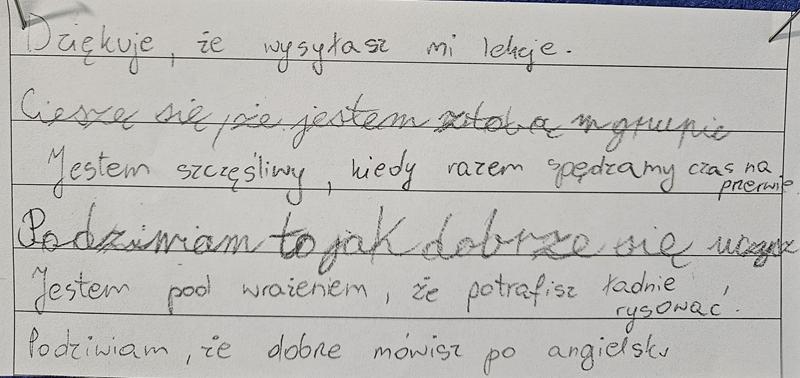 Dziękuje, że wysyłasz mi lekcje.
Cieszę się, że jestem z tobą w grupie
Jestem szczęśliwy, kiedy razem spędzamy czas na
przerwie
Podziwiam to jak dobrze się uczysz
Jestem pod wrażeniem, że potrafisz ładnie
rysować.
Podziwiam, że dobre mówisz po angielsku